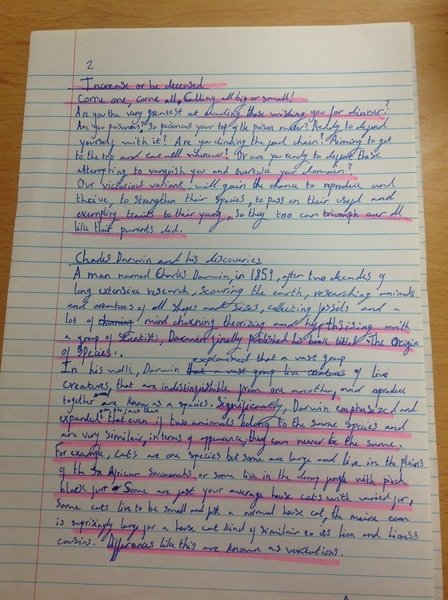 2
Increase or be deceased
Come one, come all, Calling all big or small!
Are you the very greatest at evading those wishing you for dinner?
Are you poisonous, so poisonous your top of the poison meter? Ready to defend
yourself with it? Are you climbing the food chain? Aiming to get
to the top and eat well whenever? Or are you ready to defeat those
attempting to vanquish you and overtake your domain?
Our victorious valiant will gain the chance to reproduce and
thrive, to strengthen their species, to pass on their useful and
exemplary traits to their young, so they too can triumph over all
like their parents did.
Charles Darwin and his discoveries
A man named Charles Darwin, in 1859, after two decades of
long extensive research, scouring the earth, researching animals
and creatures of all shapes and sizes, collecting fossils and a
lot of mind churning theorizing and hypothesising with
a group of scientists, Darwin finally published his book titled "The Origin
of Species".
explained that a vast group
In his work, Darwin of live
creatures, that are indistinguishable from one another and reproduce
together are known as a species. Significantly, Darwin emphasized and
expanded that even if two animals belong to the same species and
are very similair in terms of appearance, they can never be the same.
For example, cats are one species but some are large and live in the plains
of the African Savannahs or some live in the deep jungle with pitch
black fur or Some are just your average house cats with varied fur,
Some cats live to be small and just a normal house cat, the maine coon
is suprisingly large for a house cat kind of similair to its lion and lioness
cousins. Differences like this are known as variations.